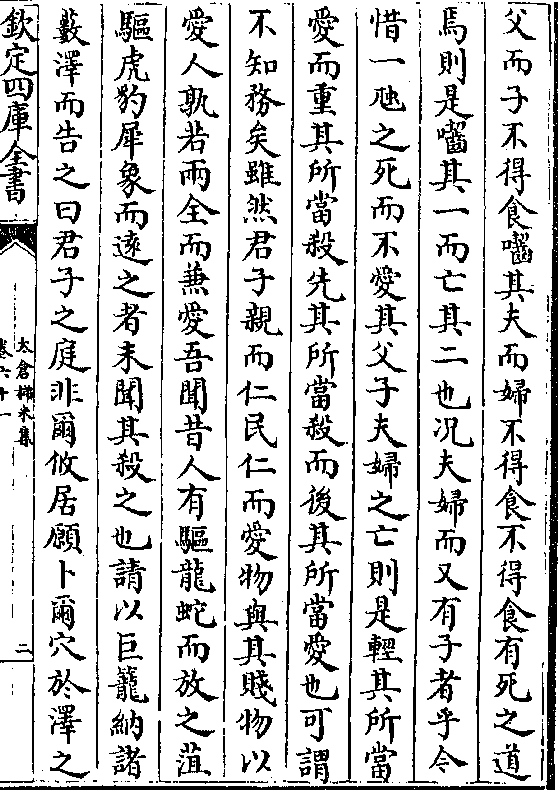 父而子不得食囓其夫而婦不得食不得食有死之道
焉則是囓其一而亡其二也况夫婦而又有子者乎今
惜一虺之死而不愛其父子夫婦之亡則是輕其所當
愛而重其所當殺先其所當殺而後其所當愛也可謂
不知務矣雖然君子親而仁民仁而愛物與其賤物以
愛人孰若兩全而兼愛吾聞昔人有驅龍蛇而放之菹
驅虎豹犀象而遠之者未聞其殺之也請以巨籠納諸
藪澤而告之曰君子之庭非爾攸居願卜爾穴於澤之
欽定四庫全書
太倉稊米集
卷六十一
二